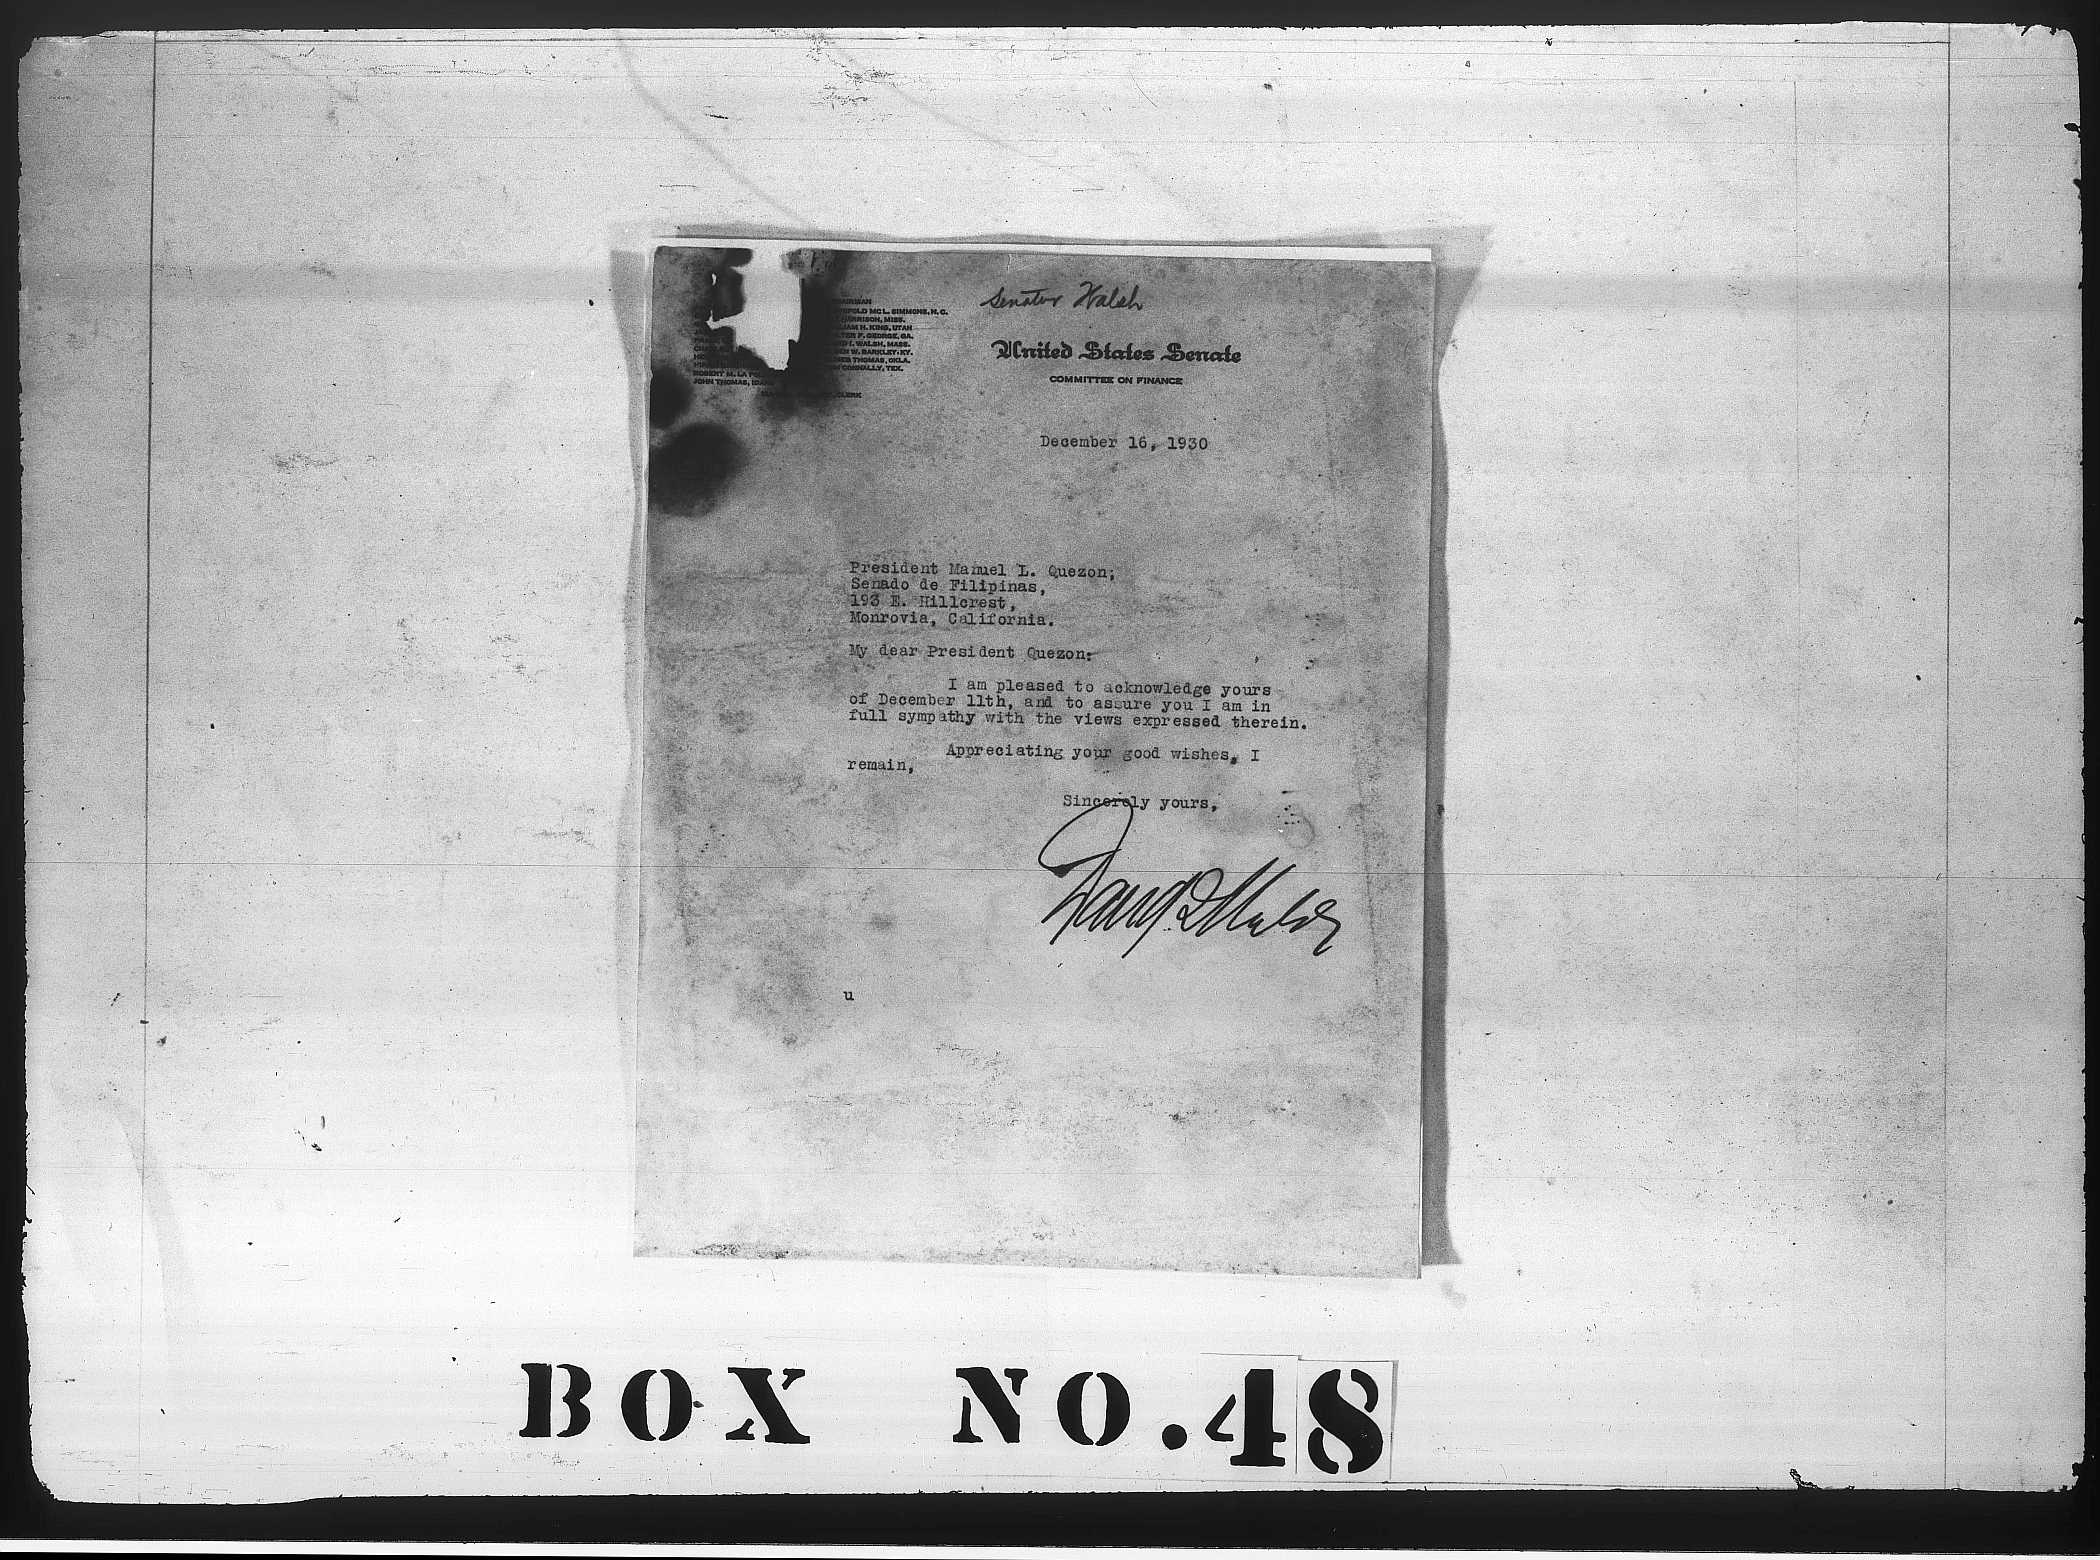 Senator Walsh
MCL. SIMMONS, N. C.
HARRISON, MISS.
H. KING, UTAH
F. GEORGE, GA.
WALSH, MASS.
W. BARKLEY, KY.
THOMAS, OKLA.
CONNALLY, TEX.
ROBERT M. LA
JOHN THOMAS,
CLERK
United States Senate
COMMITTEE ON FINANCE
December 16, 1930
President Manuel L. Quezon;
Senado de Filipinas,
193 E. Hillcrest,
Monrovia, California.
My dear President Quezon:
I am pleased to acknowledge yours
of December 11th, and to assure you I am in
full sympathy with the views expressed therein.
Appreciating your good wishes, I
remain,
Sincerely yours,
u
BOX NO. 48